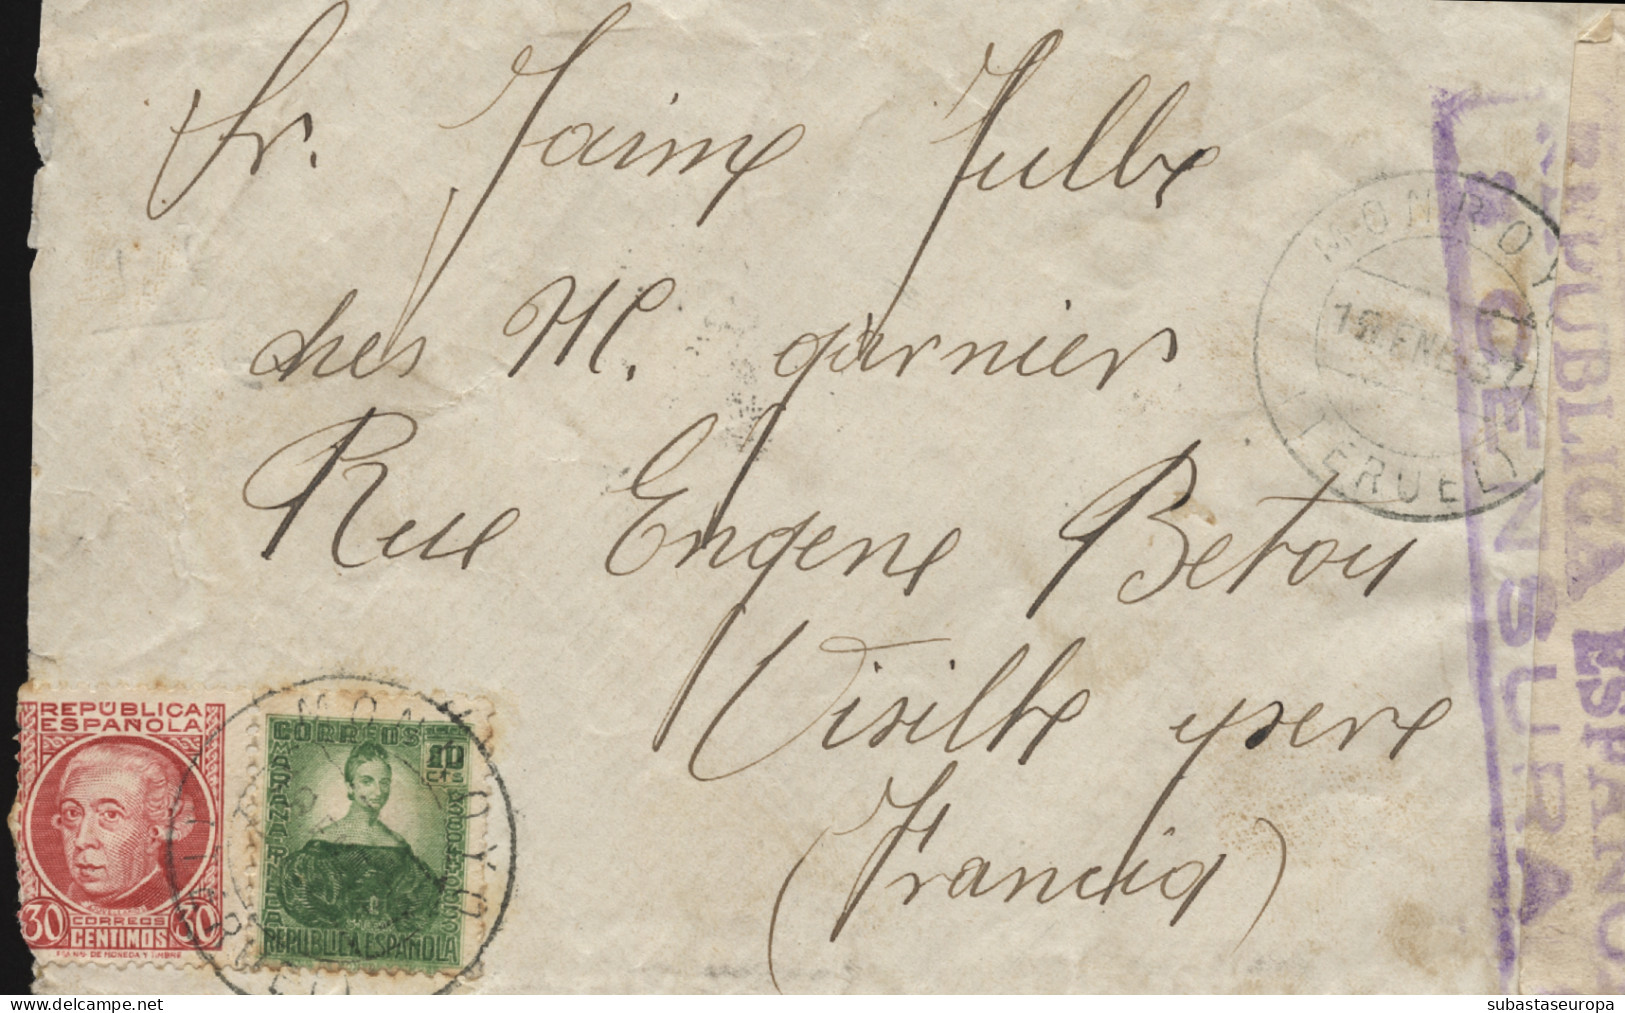 Sr. Jaime Julbe
ches M. garnier
Rue Engene Betou
Visille ysere
(Francia)
MONROYO
19 EN 37
(TERUEL)
REPÚBLICA ESPAÑOLA
CENSURA
REPÚBLICA
ESPAÑOLA
30 CORREOS 30
CENTIMOS
CORREOS
10
Cts
MARIANA PINEDA
REPUBLICA ESPAÑOLA
MONROYO
subastaseuropa